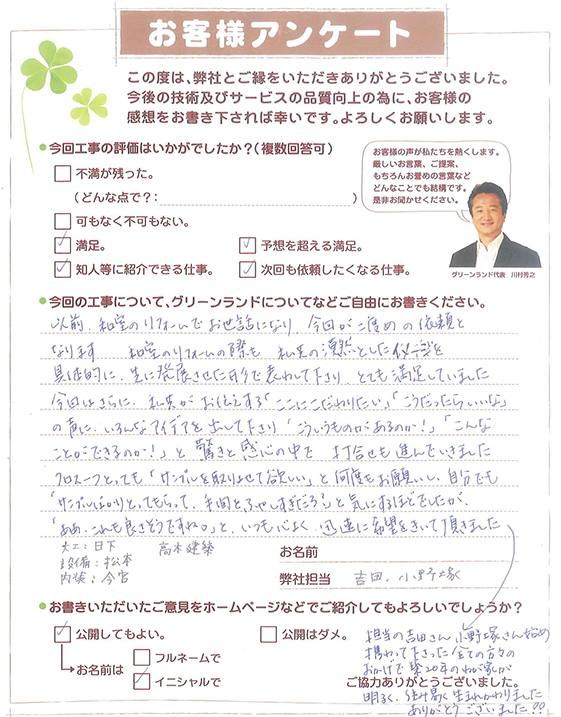 お客様アンケート
この度は、弊社とご縁をいただきありがとうございました。
今後の技術及びサービスの品質向上の為に、お客様の
感想をお書き下されば幸いです。よろしくお願いします。
今回工事の評価はいかがでしたか？（複数回答可）
不満が残った。
（どんな点で？： ）
可もなく不可もない。
満足。
予想を超える満足。
知人等に紹介できる仕事。
次回も依頼したくなる仕事。
お客様の声が私たちを熱くします。
厳しいお言葉、ご提案、
もちろんお誉めの言葉など
どんなことでも結構です。
是非お聞かせください。
グリーンランド代表　川村秀之
今回の工事について、グリーンランドについてなどご自由にお書きください。
以前、和室のリフォームでお世話になり、今回が二度めの依頼と
なります　和室のリフォームの際も　私共の漠然とした
具体的に、更に発展させた形で表わして下さり、とても満足していました
今回はさらに、私共が　お伝えする「ここにこだわりたい」「こうだったらいいな」
の声に、いろんなアイデアを出して下さり「こういうものがあるのか！」「こんな
ことができるのか！」と　驚きと感心の中で　打合せも進んでいきました
クロス一つとっても「サンプルを取りよせて欲しい」と何度もお願いし、自分でも
「サンプルばかりとってもらって、手間とふやしすぎだろう」と気にするほどでしたが、
「ああ、これも良さそうですね。」と、いつも心よく　迅速に希望をきいて頂きました
大工：日下　高木建築
設備：松本
内装：今宮
お名前
弊社担当　吉田、小野塚
お書きいただいたご意見をホームページなどでご紹介してもよろしいでしょうか？
公開してもよい。
公開はダメ。
お名前は
フルネームで
イニシャルで
担当の吉田さん　小野塚さん始め
携わって下さった全ての方々の
おかげで　築20年のわが家が
ご協力ありがとうございました。
明るく、住み易く生まれかわりました
ありがとうございました!!